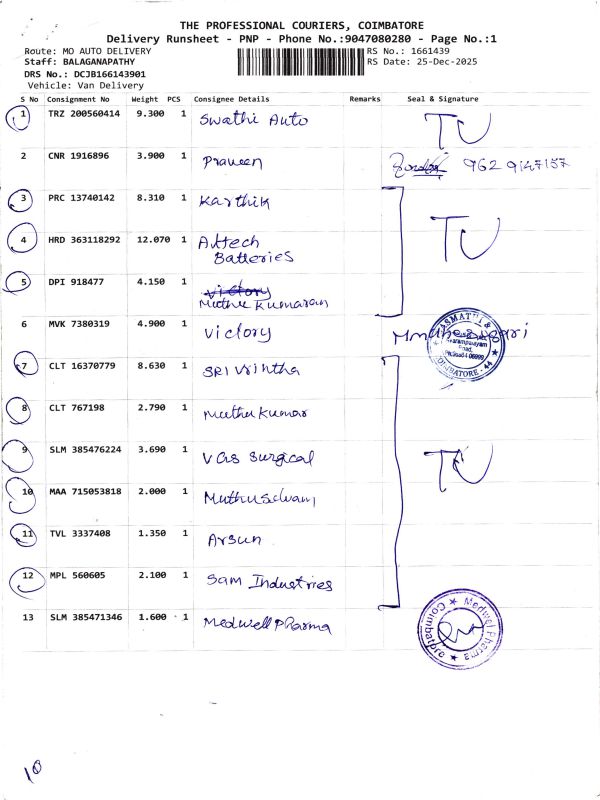 THE PROFESSIONAL COURIERS, COIMBATORE
Delivery Runsheet - PNP - Phone No.:9047080280 - Page No.:1
Route: MO AUTO DELIVERY RS No.: 1661439
Staff: BALAGANAPATHY RS Date: 25-Dec-2025
DRS No.: DCJB166143901
Vehicle: Van Delivery
S No Consignment No Weight PCS Consignee Details Remarks Seal & Signature
1 TRZ 200560414 9.300 1 Swathi Auto TU
2 CNR 1916896 3.900 1 Praveen 962 9147157
3 PRC 13740142 8.310 1 Karthik
4 HRD 363118292 12.070 1 Aktech Batteries TU
5 DPI 918477 4.150 1 victory
Muthu Kumaran
6 MVK 7380319 4.900 1 Victory
7 CLT 16370779 8.630 1 SRI Vrintha
8 CLT 767198 2.790 1 Muthu Kumar
9 SLM 385476224 3.690 1 Vas Surgical TU
10 MAA 715053818 2.000 1 Muthuselvam
11 TVL 3337408 1.350 1 Arsun
12 MPL 560605 2.100 1 Sam Industries
13 SLM 385471346 1.600 1 Medwell Pharma
Medwell Pharma Coimbatore
10